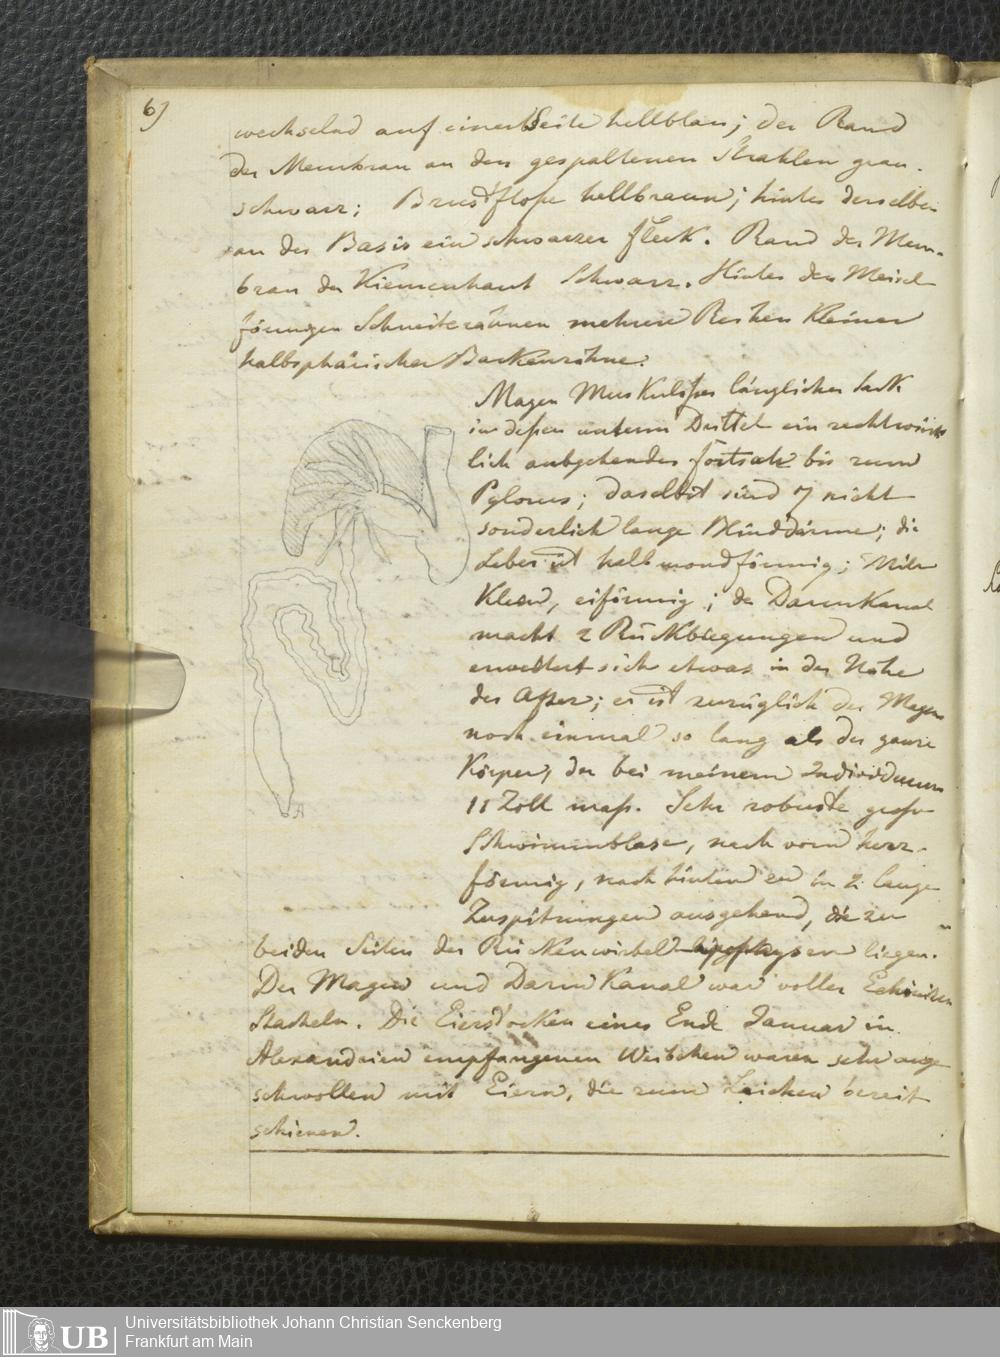 6)
wechselnd auf einer Seite hellblau; der Rand
der Membran an den gespaltenen Strahlen grau-
schwarz; Brustfloße hellbraun; hinter derselben
an der Basis ein schwarzer Fleck. Rand der Mem-
bran der Kiemenhaut Schwarz. Hinter den Meisel-
förmigen Schneitezähnen mehrere Reihen kleiner
halbsphärischer Backenzähne.
Magen Muskulößer länglicher Sack
in deßen unterm Drittel ein rechtwink-
lich aubgehender Fortsatz bis zum
Pylorus; daselbst sind 7 nicht
sonderlich lange Blinddärme; die
Leber ist halbmondförmig; Milz
Klein, eiförmig; der Darmkanal
macht 2 Rückbiegungen und
erweitert sich etwas in der Nähe
des After; er ist zuzüglich des Magens
noch einmal so lang als der ganze
Körper, der bei meinem Individuum
11 Zoll maß. Sehr robuste große
Schwimmblase, nach vorn herz-
förmig, nach hinten zu in 2 lange
Zuspitzungen ausgehend, die zu
beiden Seiten der Rückenwirbel liegen.
Der Magen und Darmkanal war voller Echiniten
Stacheln. Die Eierstocken eines Ende Januar in
Alexandrien empfangenen Weibchen waren sehr ange-
schwollen mit Eiern, die zum Laichen bereit
schienen.
A
UB
Universitätsbibliothek Johann Christian Senckenberg
Frankfurt am Main